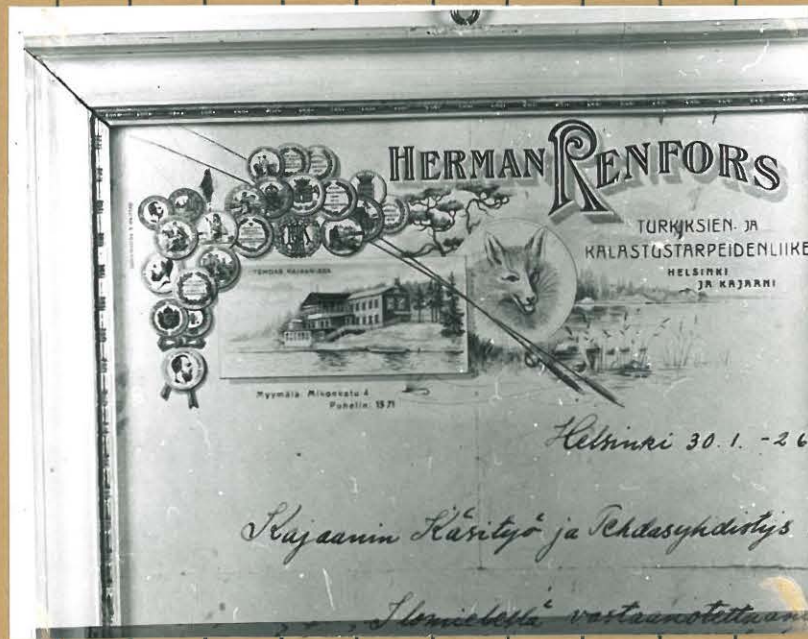 HERMAN RENFORS
TURKIKSIEN- JA
KALASTUSTARPEIDENLIIKE
HELSINKI
JA KAJAANI
TEHDAS KAJAANISSA
Myymälä: Mikonkatu 4
Puhelin: 1571
Helsinki 30.1.-26
Kajaanin Käsityö ja Tehdasyhdistys
vastaanotettuan